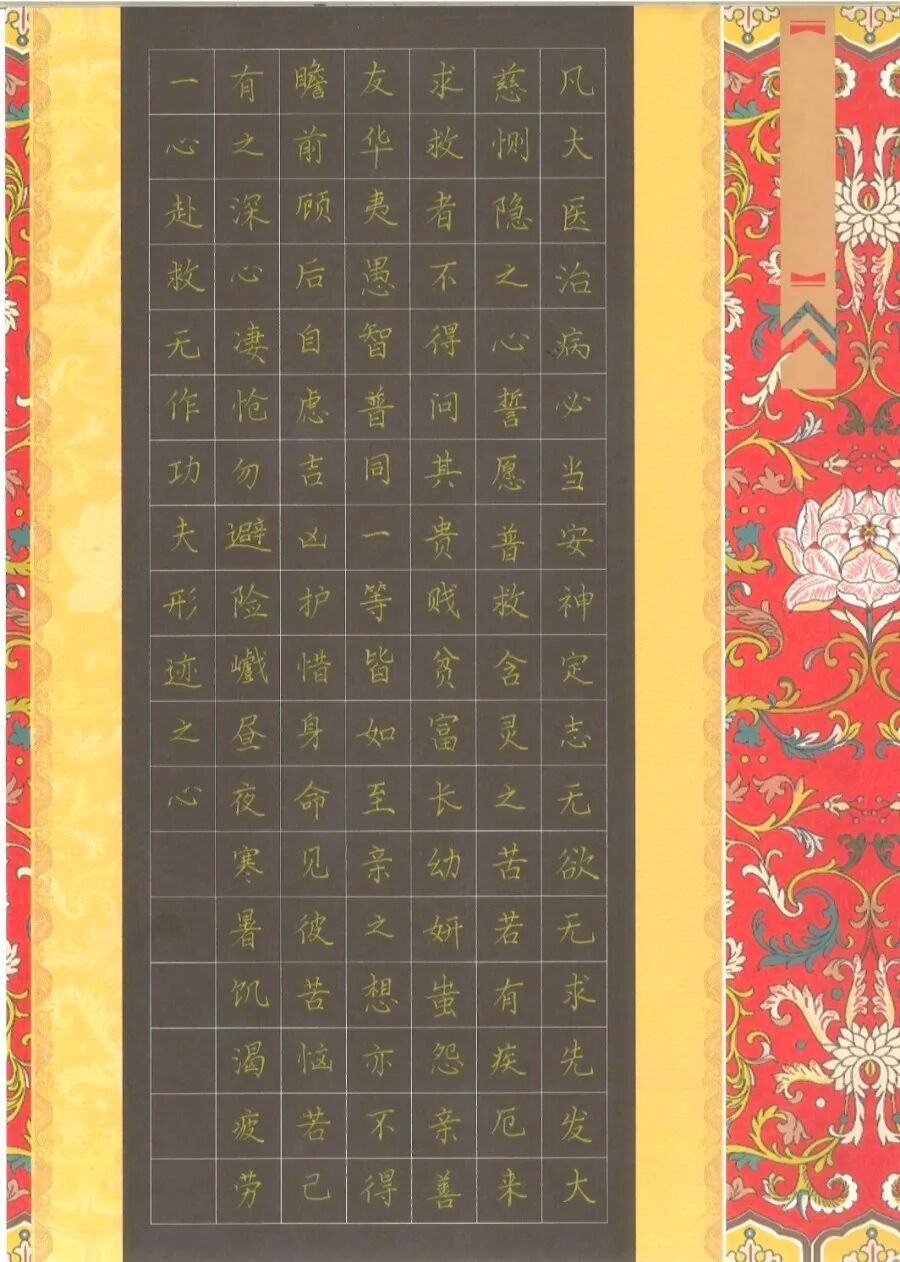 凡大医治病必当安神定志无欲无求先发大
慈恻隐之心誓愿普救含灵之苦若有疾厄来
求救者不得问其贵贱贫富长幼妍蚩怨亲善
友华夷愚智普同一等皆如至亲之想亦不得
瞻前顾后自虑吉凶护惜身命见彼苦恼若己
有之深心凄怆勿避险巇昼夜寒暑饥渴疲劳
一心赴救无作功夫形迹之心